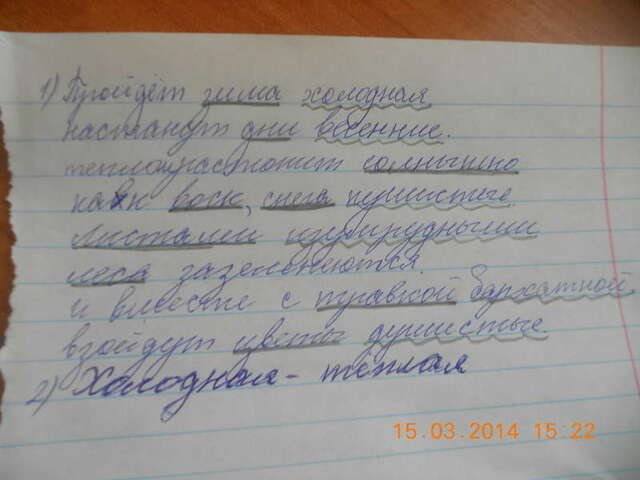 1) Пройдёт зима холодная
настанут дни весенние.
теплом растопит солнышко
как воск, снега пушистые.
Листами изумрудными
леса зазеленяются.
и вместе с травкой бархатной
взойдут цветы душистые.
2) Холодная - тёплая
15.03.2014 15:22